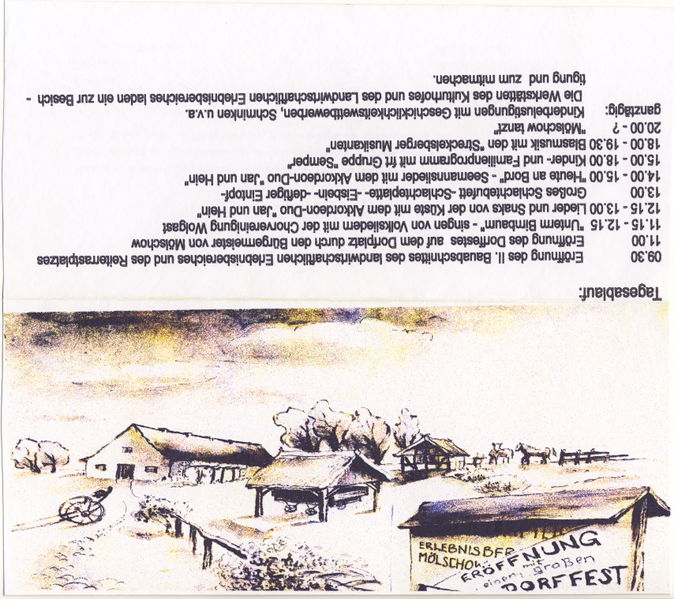 Tagesablauf:
09.30 Eröffnung des II. Bauabschnittes des landwirtschaftlichen Erlebnisbereiches und des Reiterrastplatzes
11.00 Eröffnung des Dorffestes auf dem Dorfplatz durch den Bürgermeister von Mölschow
11.15 - 12.15 "Unterm Birnbaum" - singen von Volksliedern mit der Chorvereinigung Wolgast
12.15 - 13.00 Lieder und Snaks von der Küste mit dem Akkordeon-Duo "Jan und Hein"
13.00 Großes Schlachtebufett -Schlachteplatte- -Eisbein- -deftiger Eintopf-
14.00 - 15.00 "Heute an Bord" - Seemannslieder mit dem Akkordeon-Duo "Jan und Hein"
15.00 - 18.00 Kinder- und Familienprogramm mit frt Gruppe "Semper"
18.00 - 19.30 Blasmusik mit den "Streckelsberger Musikanten"
20.00 - ? "Mölschow tanzt"
ganztägig: Kinderbelustigungen mit Geschicklichkeitswettbewerben, Schminken u.v.a.
Die Werkstätten des Kulturhofes und des Landwirtschaftlichen Erlebnisbereiches laden ein zur Besich -
tigung und zum mitmachen.
ERLEBNISBER
MÖLSCHOW
ERÖFFNUNG
mit
einem großen
DORFFEST